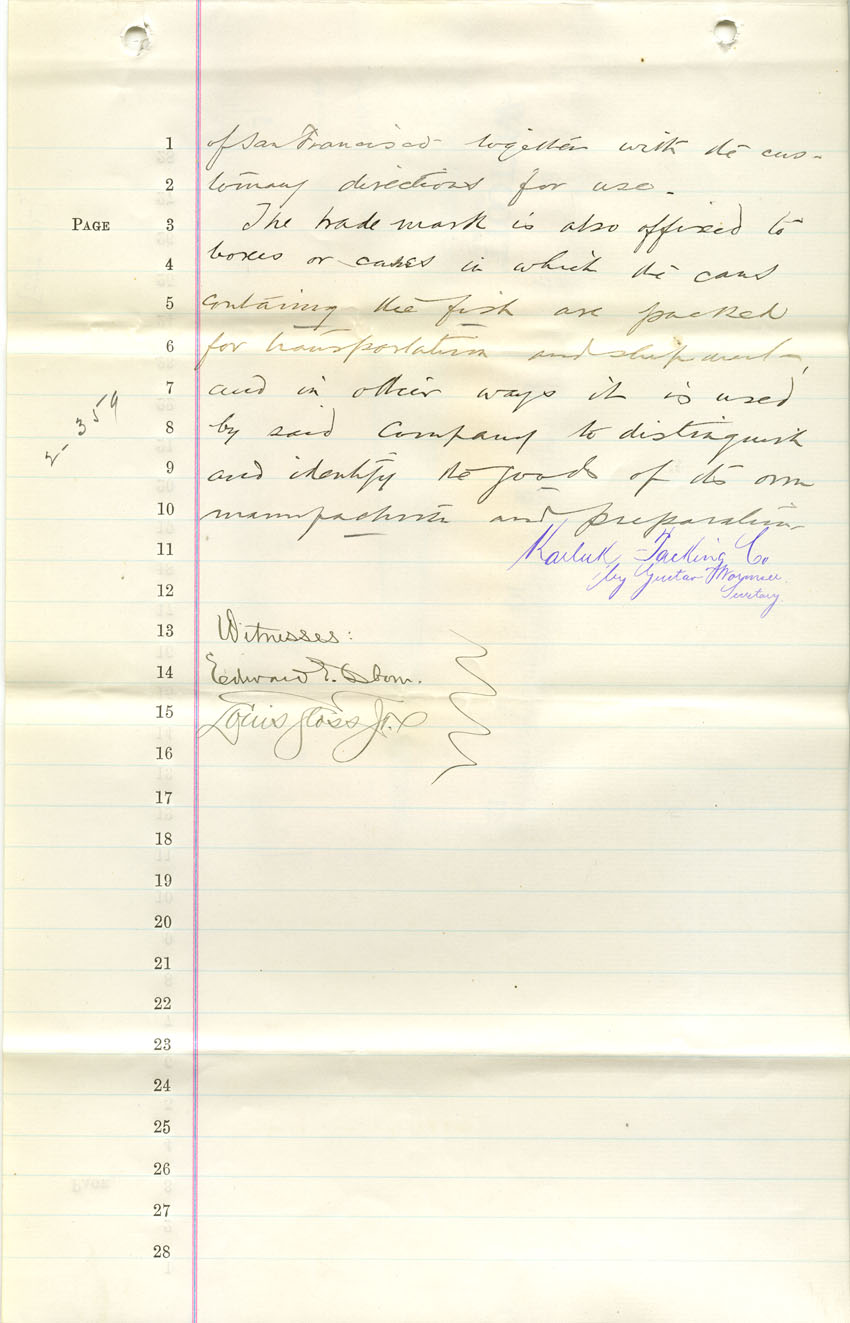 1 of San Francisco together with the cus-
2 tomary directions for use.
PAGE 3 The trade mark is also affixed to
4 boxes or cases in which the cans
5 containing the fish are packed
6 for transportation and shipment,
7 and in other ways it is used
2-359
8 by said Company to distinguish
9 and identify the goods of its own
10 manufacture and preparation
11 Karluk Packing Co
by Gustav
12 Secretary.
13 Witnesses:
14 Edward E. Osborn.
15 Louis Sloss Jr.
16
17
18
19
20
21
22
23
24
25
26
27
28